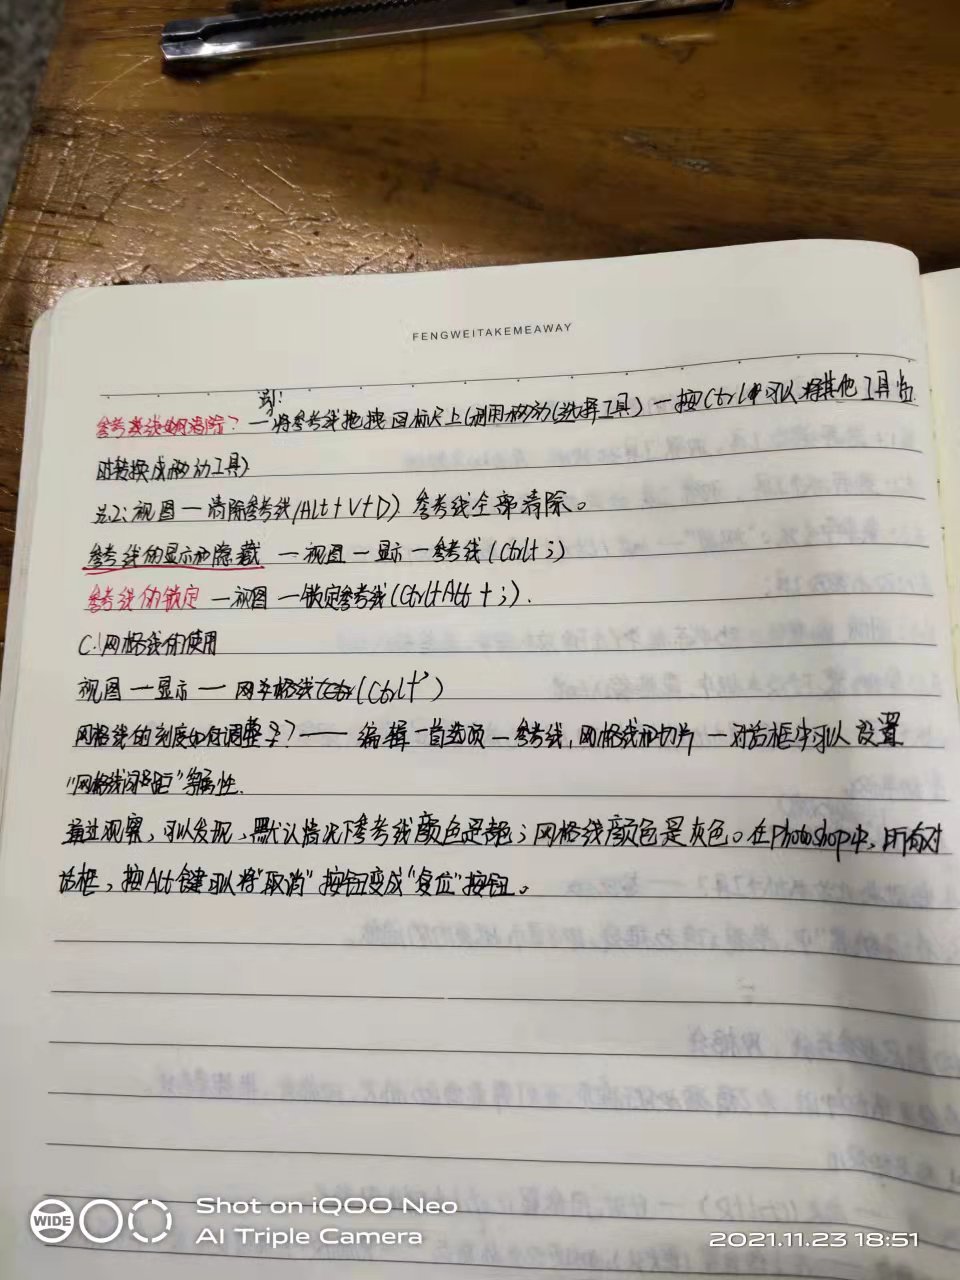 FENGWEITAKEMEAWAY
法1:
参考线如何清除？一将参考线拖拽回标尺上(利用移动(选择工具)一按Ctrl中可以将其他工具临
时转换成移动工具)
法2:视图一清除参考线(Alt+V+D)参考线全部清除。
参考线的显示和隐藏 一视图一显示一参考线(Ctrl+;)
参考线的锁定 一视图 一锁定参考线(Ctrl+Alt+;).
C.网格线的使用
视图一显示一网格线(Ctrl+")
网格线的刻度如何调整？一编辑一首选项一参考线,网格线和切片一对话框中可以设置
"网格线间距"等属性.
通过观察,可以发现,默认情况下参考线颜色是青色;网格线颜色是灰色。在Photoshop中,所有对
话框,按Alt键可以将"取消"按钮变成"复位"按钮。
WIDE
Shot on iQOO Neo
AI Triple Camera
2021.11.23 18:51